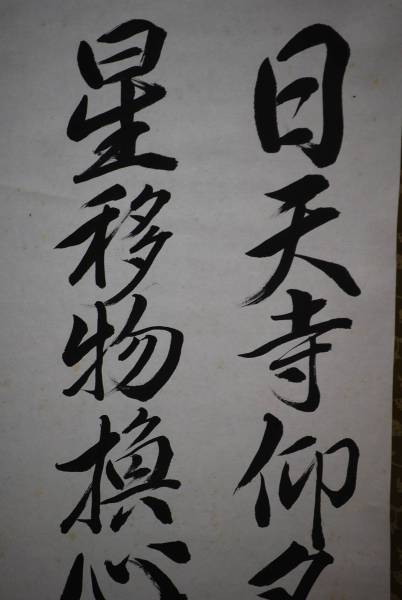 日天寺仰名
星移物換心